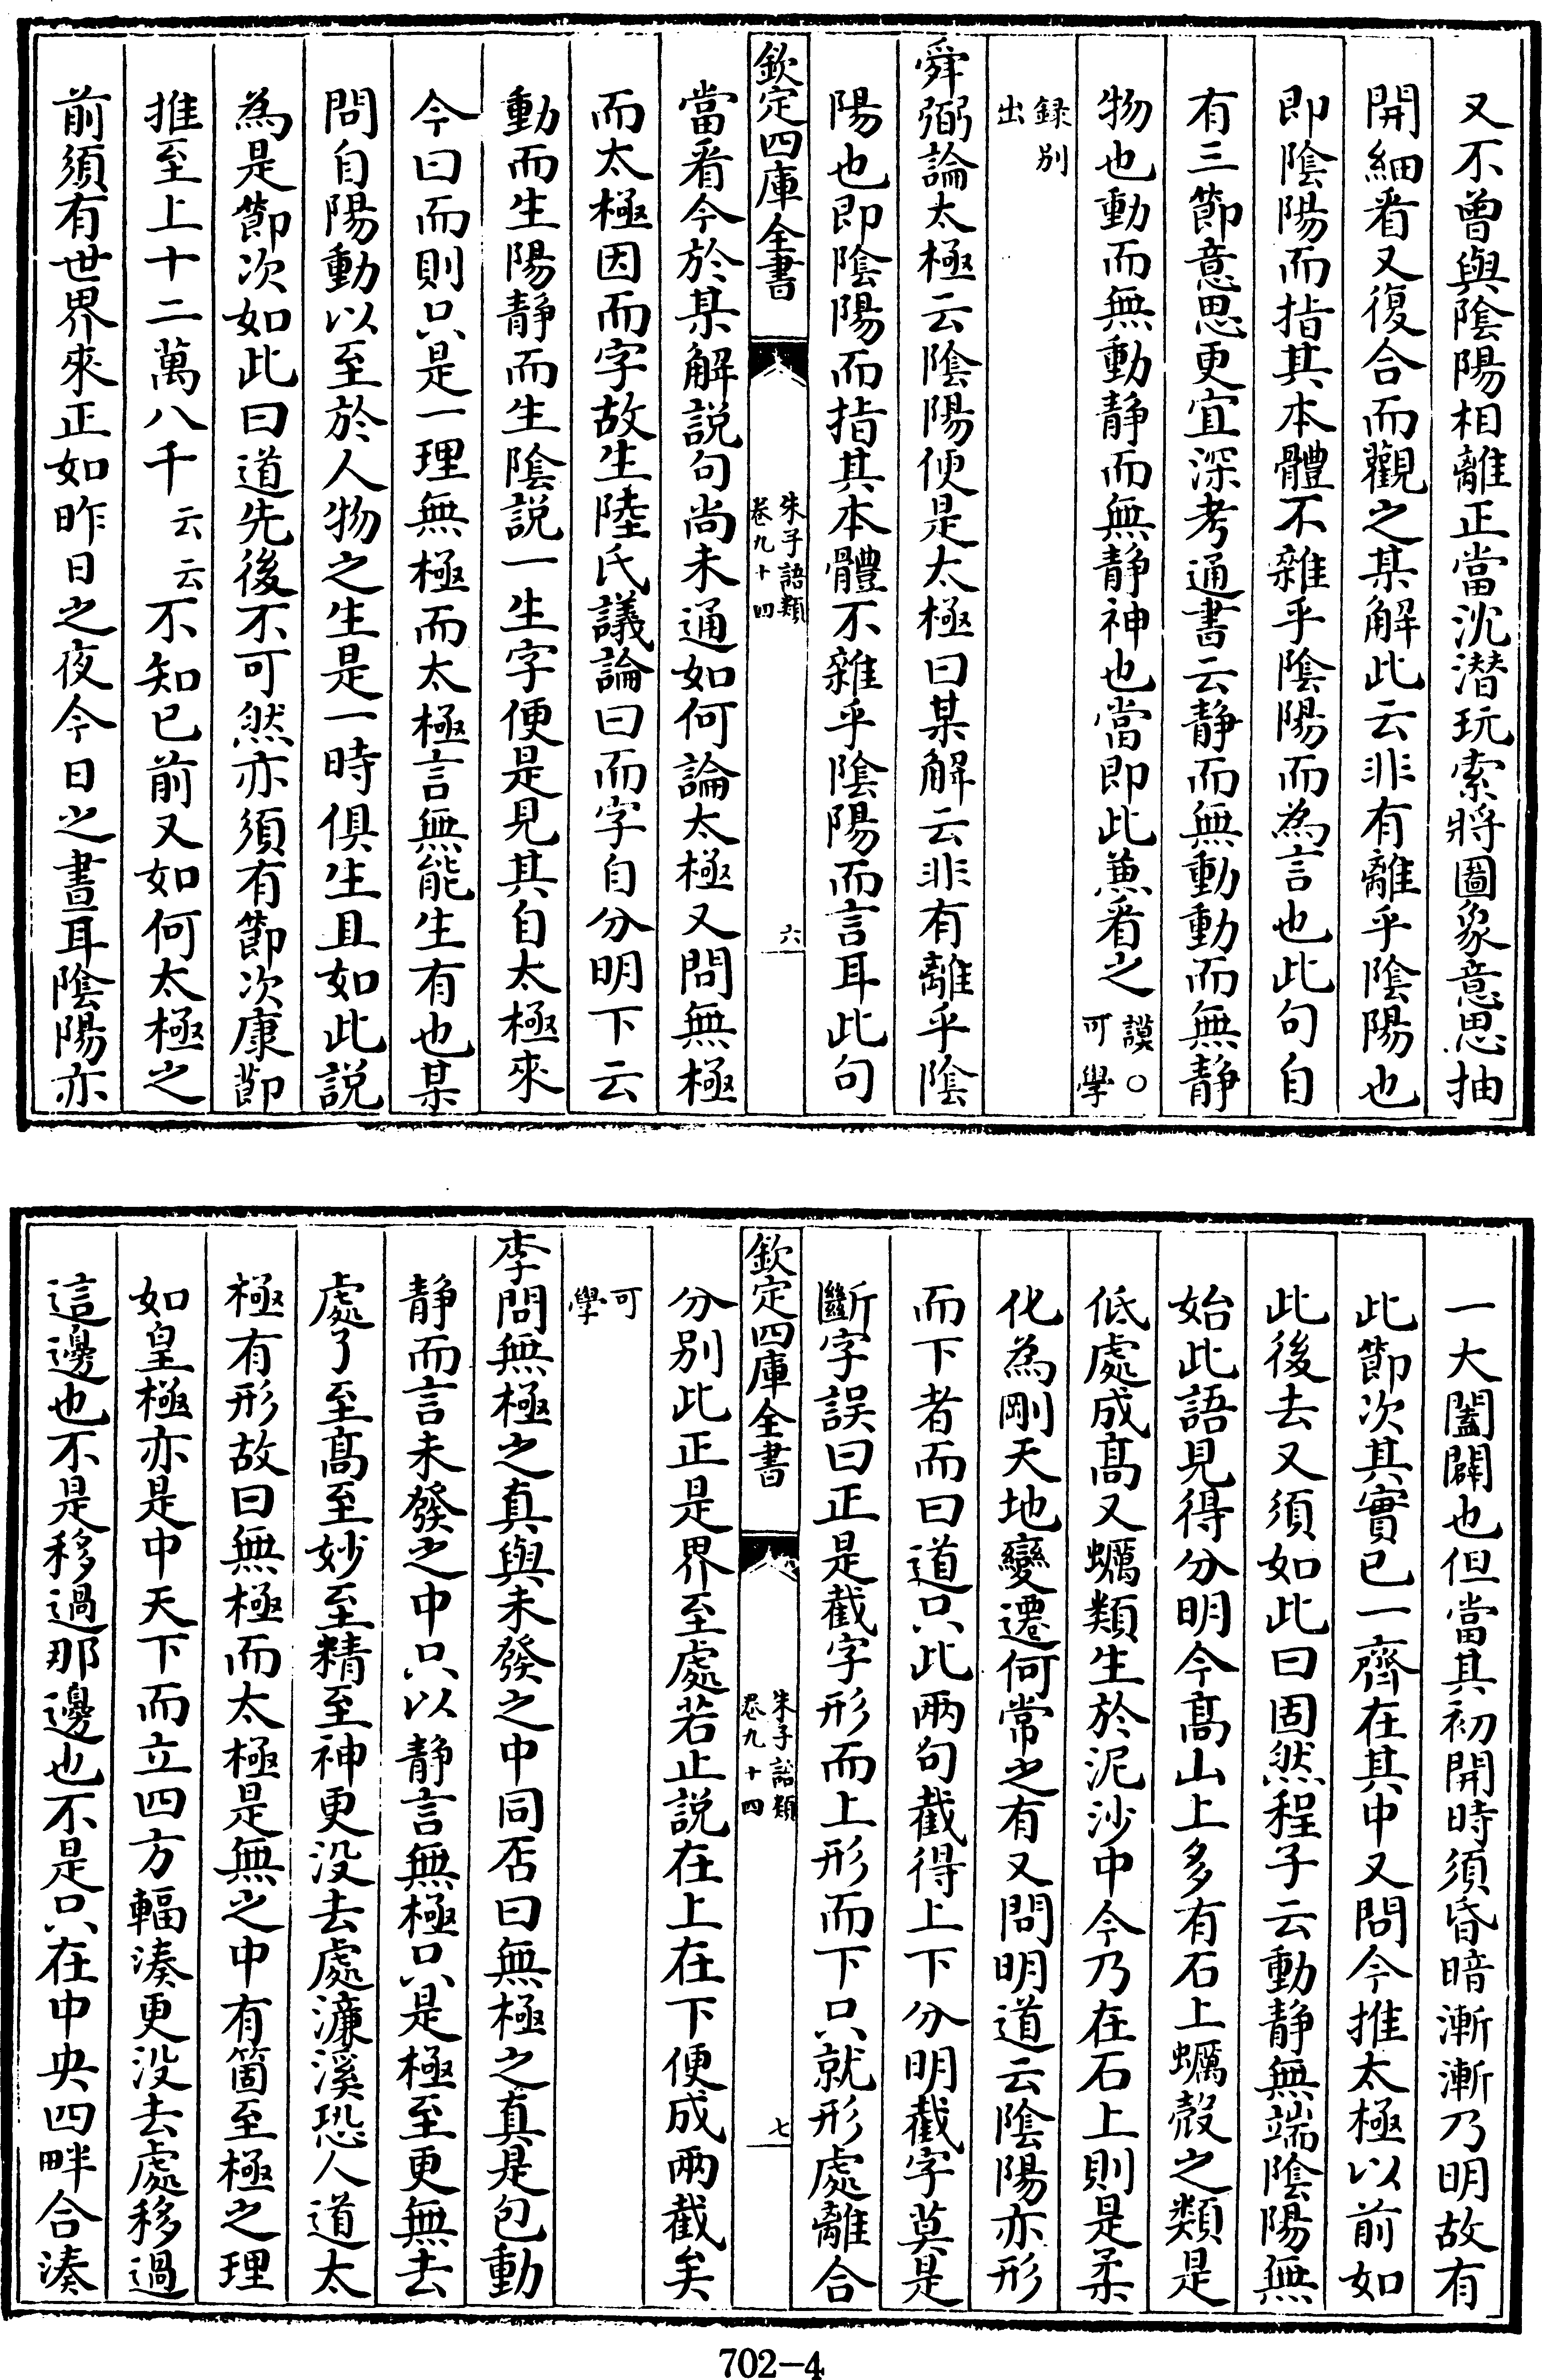 又不曾與陰陽相離正當沈潜玩索將圖象意思抽
開細看又復合而觀之某解此云非有離乎陰陽也
即陰陽而指其本體不雜乎陰陽而為言也此句自
有三節意思更宜深考通書云静而無動動而無静
物也動而無動静而無静神也當即此兼看之謨○可學
録别出
舜弼論太極云陰陽便是太極曰某解云非有離乎陰
陽也即陰陽而指其本體不雜乎陰陽而言耳此句
欽定四庫全書 朱子語類 卷九十四 六
當看今於某解説句尚未通如何論太極又問無極
而太極因而字故生陸氏議論曰而字自分明下云
動而生陽静而生陰説一生字便是見其自太極來
今曰而則只是一理無極而太極言無能生有也某
問自陽動以至於人物之生是一時俱生且如此説
為是節次如此曰道先後不可然亦須有節次康節
推至上十二萬八千云云不知已前又如何太極之
前須有世界來正如昨日之夜今日之晝耳陰陽亦
一大闔闢也但當其初開時須昏暗漸漸乃明故有
此節次其實已一齊在其中又問今推太極以前如
此後去又須如此曰固然程子云動静無端陰陽無
始此語見得分明今髙山上多有石上蠣殻之類是
低處成髙又蠣類生於泥沙中今乃在石上則是柔
化為剛天地變遷何常之有又問明道云陰陽亦形
而下者而曰道只此兩句截得上下分明截字莫是
斷字誤曰正是截字形而上形而下只就形處離合
欽定四庫全書 朱子語類 卷九十四 七
分别此正是界至處若止説在上在下便成兩截矣
可學
李問無極之真與未發之中同否曰無極之真是包動
静而言未發之中只以静言無極只是極至更無去
處了至髙至妙至精至神更没去處濂溪恐人道太
極有形故曰無極而太極是無之中有箇至極之理
如皇極亦是中天下而立四方輻湊更没去處移過
這邊也不是移過那邊也不是只在中央四畔合湊
702-4